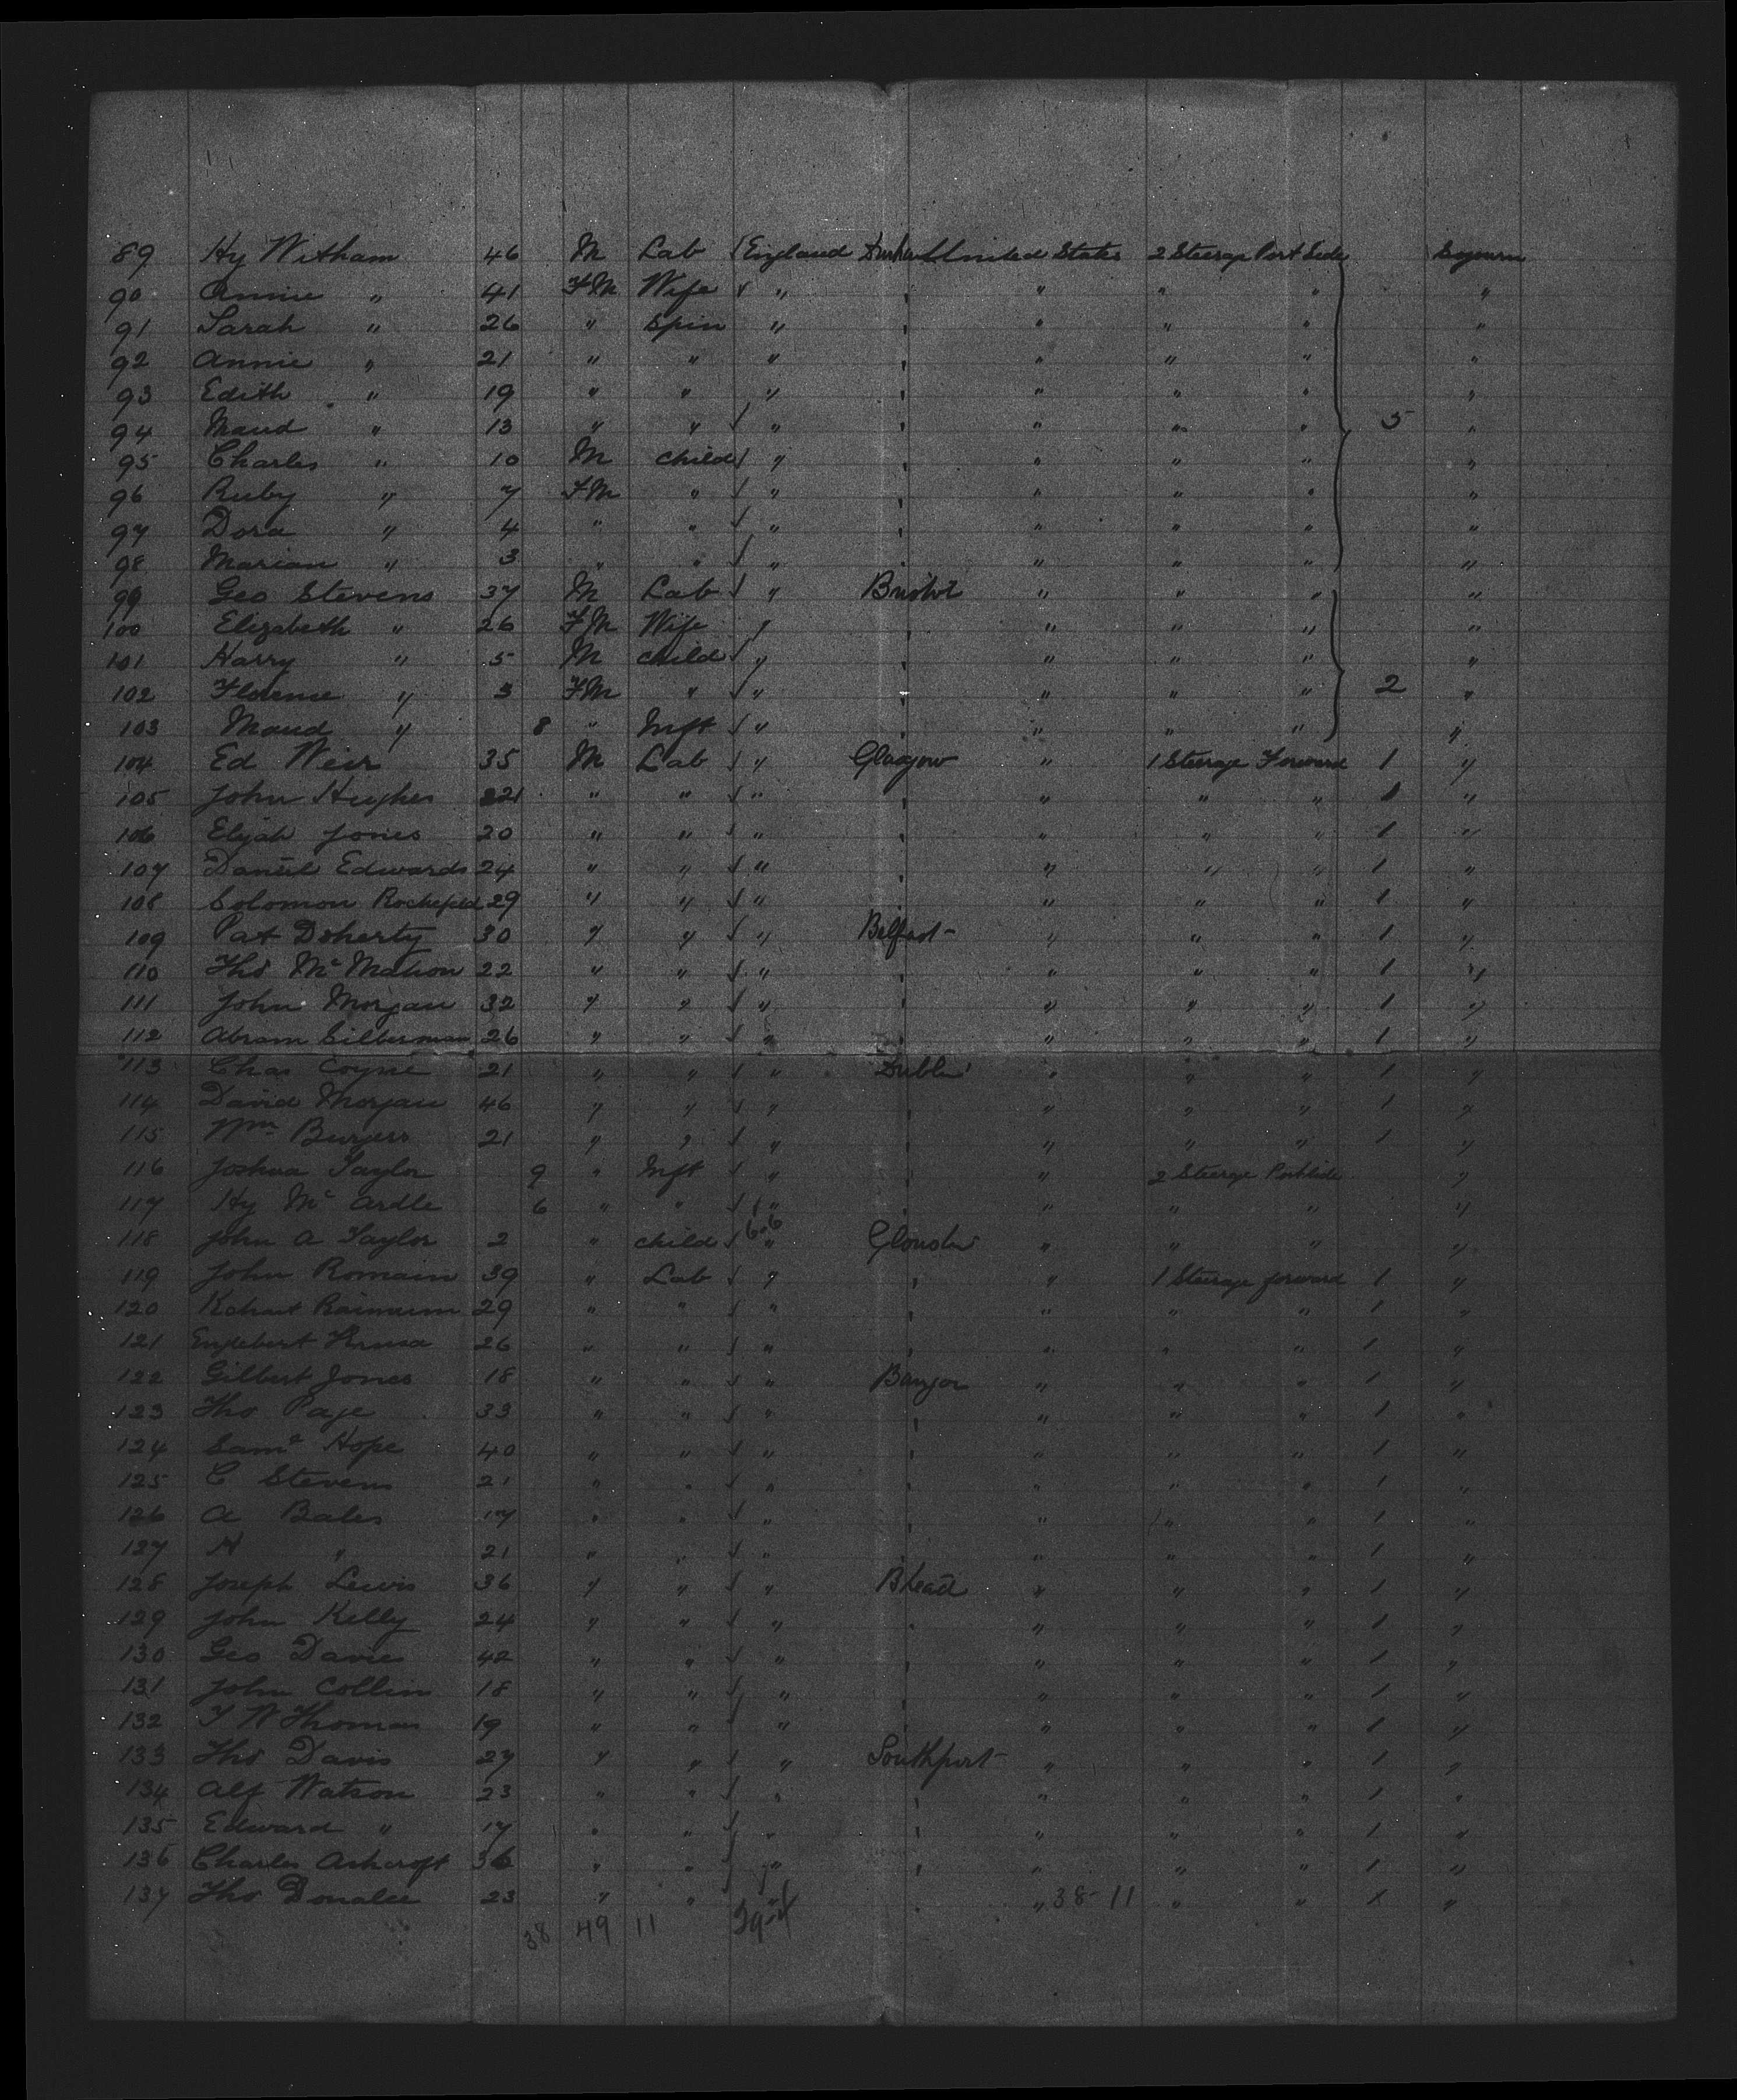 89 Hy Witham 46 M Lab England Durham United States 2 Steerage Port Side Sojourn
90 Annie " 41 FM Wife " " " " " "
91 Sarah " 26 " Spin " " " " " "
92 Annie " 21 " " " " " " " "
93 Edith " 19 " " " " " " " "
94 Maud " 13 " " " " " " " 5 "
95 Charles " 10 M child " " " " " "
96 Ruby " 7 FM " " " " " " "
97 Dora " 4 " " " " " " " "
98 Marian " 3 " " " " " " " "
99 Geo Stevens 37 M Lab " Bristol " " " "
100 Elizabeth " 26 FM Wife " " " " " "
101 Harry " 5 M child " " " " " "
102 Florence " 3 FM " " " " " " 2 "
103 Maud " 8 " Inft " " " " " "
104 Ed Weir 35 M Lab " Glasgow " 1 Steerage Forward 1 "
105 John Hughes 21 " " " " " " " 1 "
106 Elijah Jones 20 " " " " " " " 1 "
107 Daniel Edwards 24 " " " " " " " 1 "
108 Solomon 29 " " " " " " " 1 "
109 Pat Doherty 30 " " " Belfast " " " 1 "
110 Thos McMahon 22 " " " " " " " 1 "
111 John Morgan 32 " " " " " " " 1 "
112 Abram Silberman 26 " " " " " " " 1 "
113 Chas Coyne 21 " " " Dublin " " " 1 "
114 David Morgan 46 " " " " " " " 1 "
115 Wm Burgess 21 " " " " " " " 1 "
116 Joshua Taylor 9 " Inft " " " 2 Steerage Portside "
117 Hy McArdle 6 " " " " " " " "
118 John A Taylor 2 " child " 6-6 " " " "
119 John Romain 39 " Lab " " " 1 Steerage forward 1 "
120 29 " " " " " " " 1 "
121 26 " " " " " " " 1 "
122 Gilbert Jones 18 " " " Bangor " " " 1 "
123 Tho Page 33 " " " " " " " 1 "
124 Saml Hope 40 " " " " " " " 1 "
125 C Stevens 21 " " " " " " " 1 "
126 A Bales 17 " " " " " " " 1 "
127 H " 21 " " " " " " " 1 "
128 Joseph Lewis 36 " " " Bhead " " " 1 "
129 John Kelly 24 " " " " " " " 1 "
130 Geo Davies 42 " " " " " " " 1 "
131 John Collin 18 " " " " " " " 1 "
132 T W Thomas 19 " " " " " " " 1 "
133 Thos Davis 27 " " " Southport " " " 1 "
134 Alf Watson 23 " " " " " " " 1 "
135 Edward " 17 " " " " " " " 1 "
136 Charles Ashcroft 36 " " " " " " " 1 "
137 Tho Donalee 23 " " " " " 38-11 " " 1 "
38 49 11